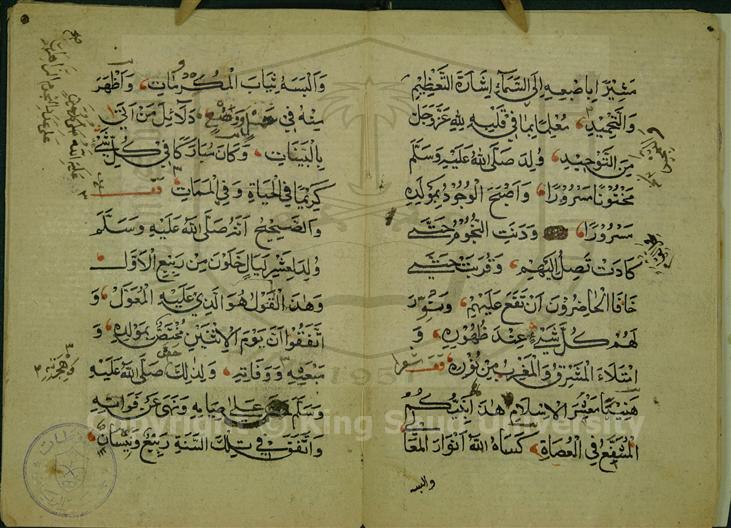 مشيرا باصبعه إلى السماء إشارة التعظيم
والتمجيد، معلنا بما في قلبه لله عز وجل
من التوحيد، ولد صلى الله عليه وسلم
مختونا مسرورا، وأضحى الوجود بمولده
مسرورا، ودنت النجوم حتى
كادت تصل إليهم، وقربت حتى
خاف الحاضرون ان تقع عليهم، وتنور
لهم كل شيء عند ظهوره، و
امتلاء المشرق والمغرب من نوره،
هنيئا معشر الاسلام هذا نبيكم
المشفع في العصاة، كساه الله أنوار المعا
والبسه
والبسه ثياب المكرمات، وأظهر
منه في دلائل من اتى
بالبينات، وكان مباركا في كل شئ
كريما في الحياة وفي الممات،
والصحيح انه صلى الله عليه وسلم
ولد لعشر ليال خلون من ربيع الأول
وهذا القول هو الذي عليه المعول، و
اتفقوا ان يوم الاثنين مختص بمولده، و
مبعثه ووفاته، ولذلك صلى الله عليه
وسلم على صيامه ونهى عن فواته
واتفق في تلك السنة ربيع ونيسان،
Copyright © King Saud University
1957